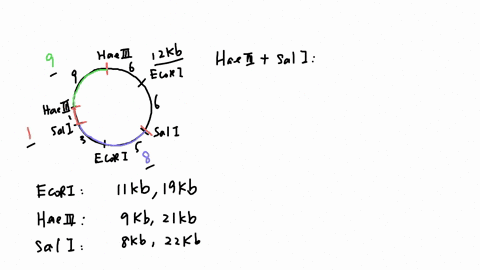 HaeIII
12Kb
EcoRI
HaeIII + SalI:
9
9
6
6
HaeIII
SalI
1
3
EcoRI
5
8
SalI
EcoRI: 11Kb, 19Kb
HaeIII: 9Kb, 21Kb
SalI: 8Kb, 22Kb